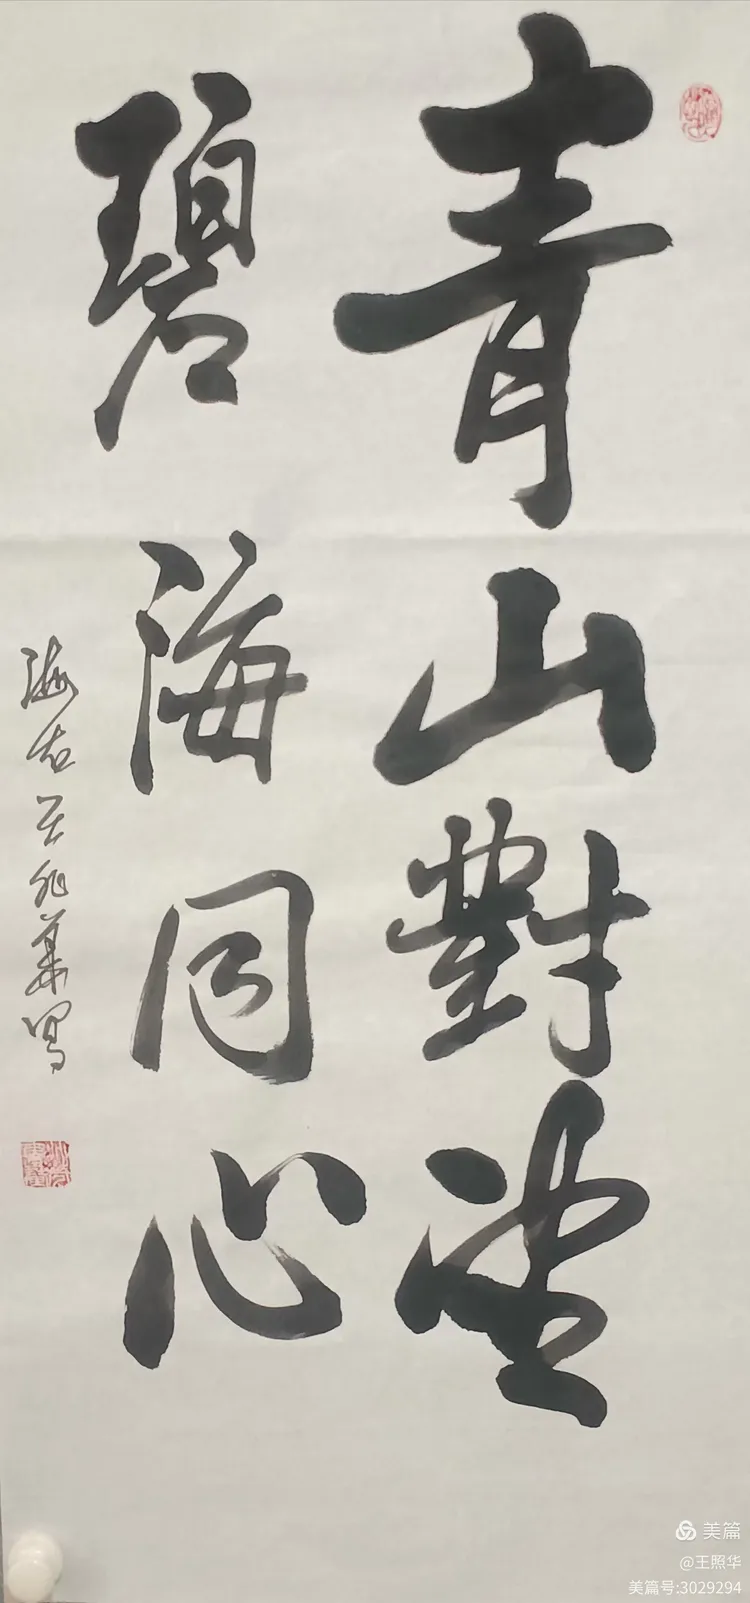 青山對望
碧海同心
海右王照華寫
美篇
@王照华
美篇号:3029294